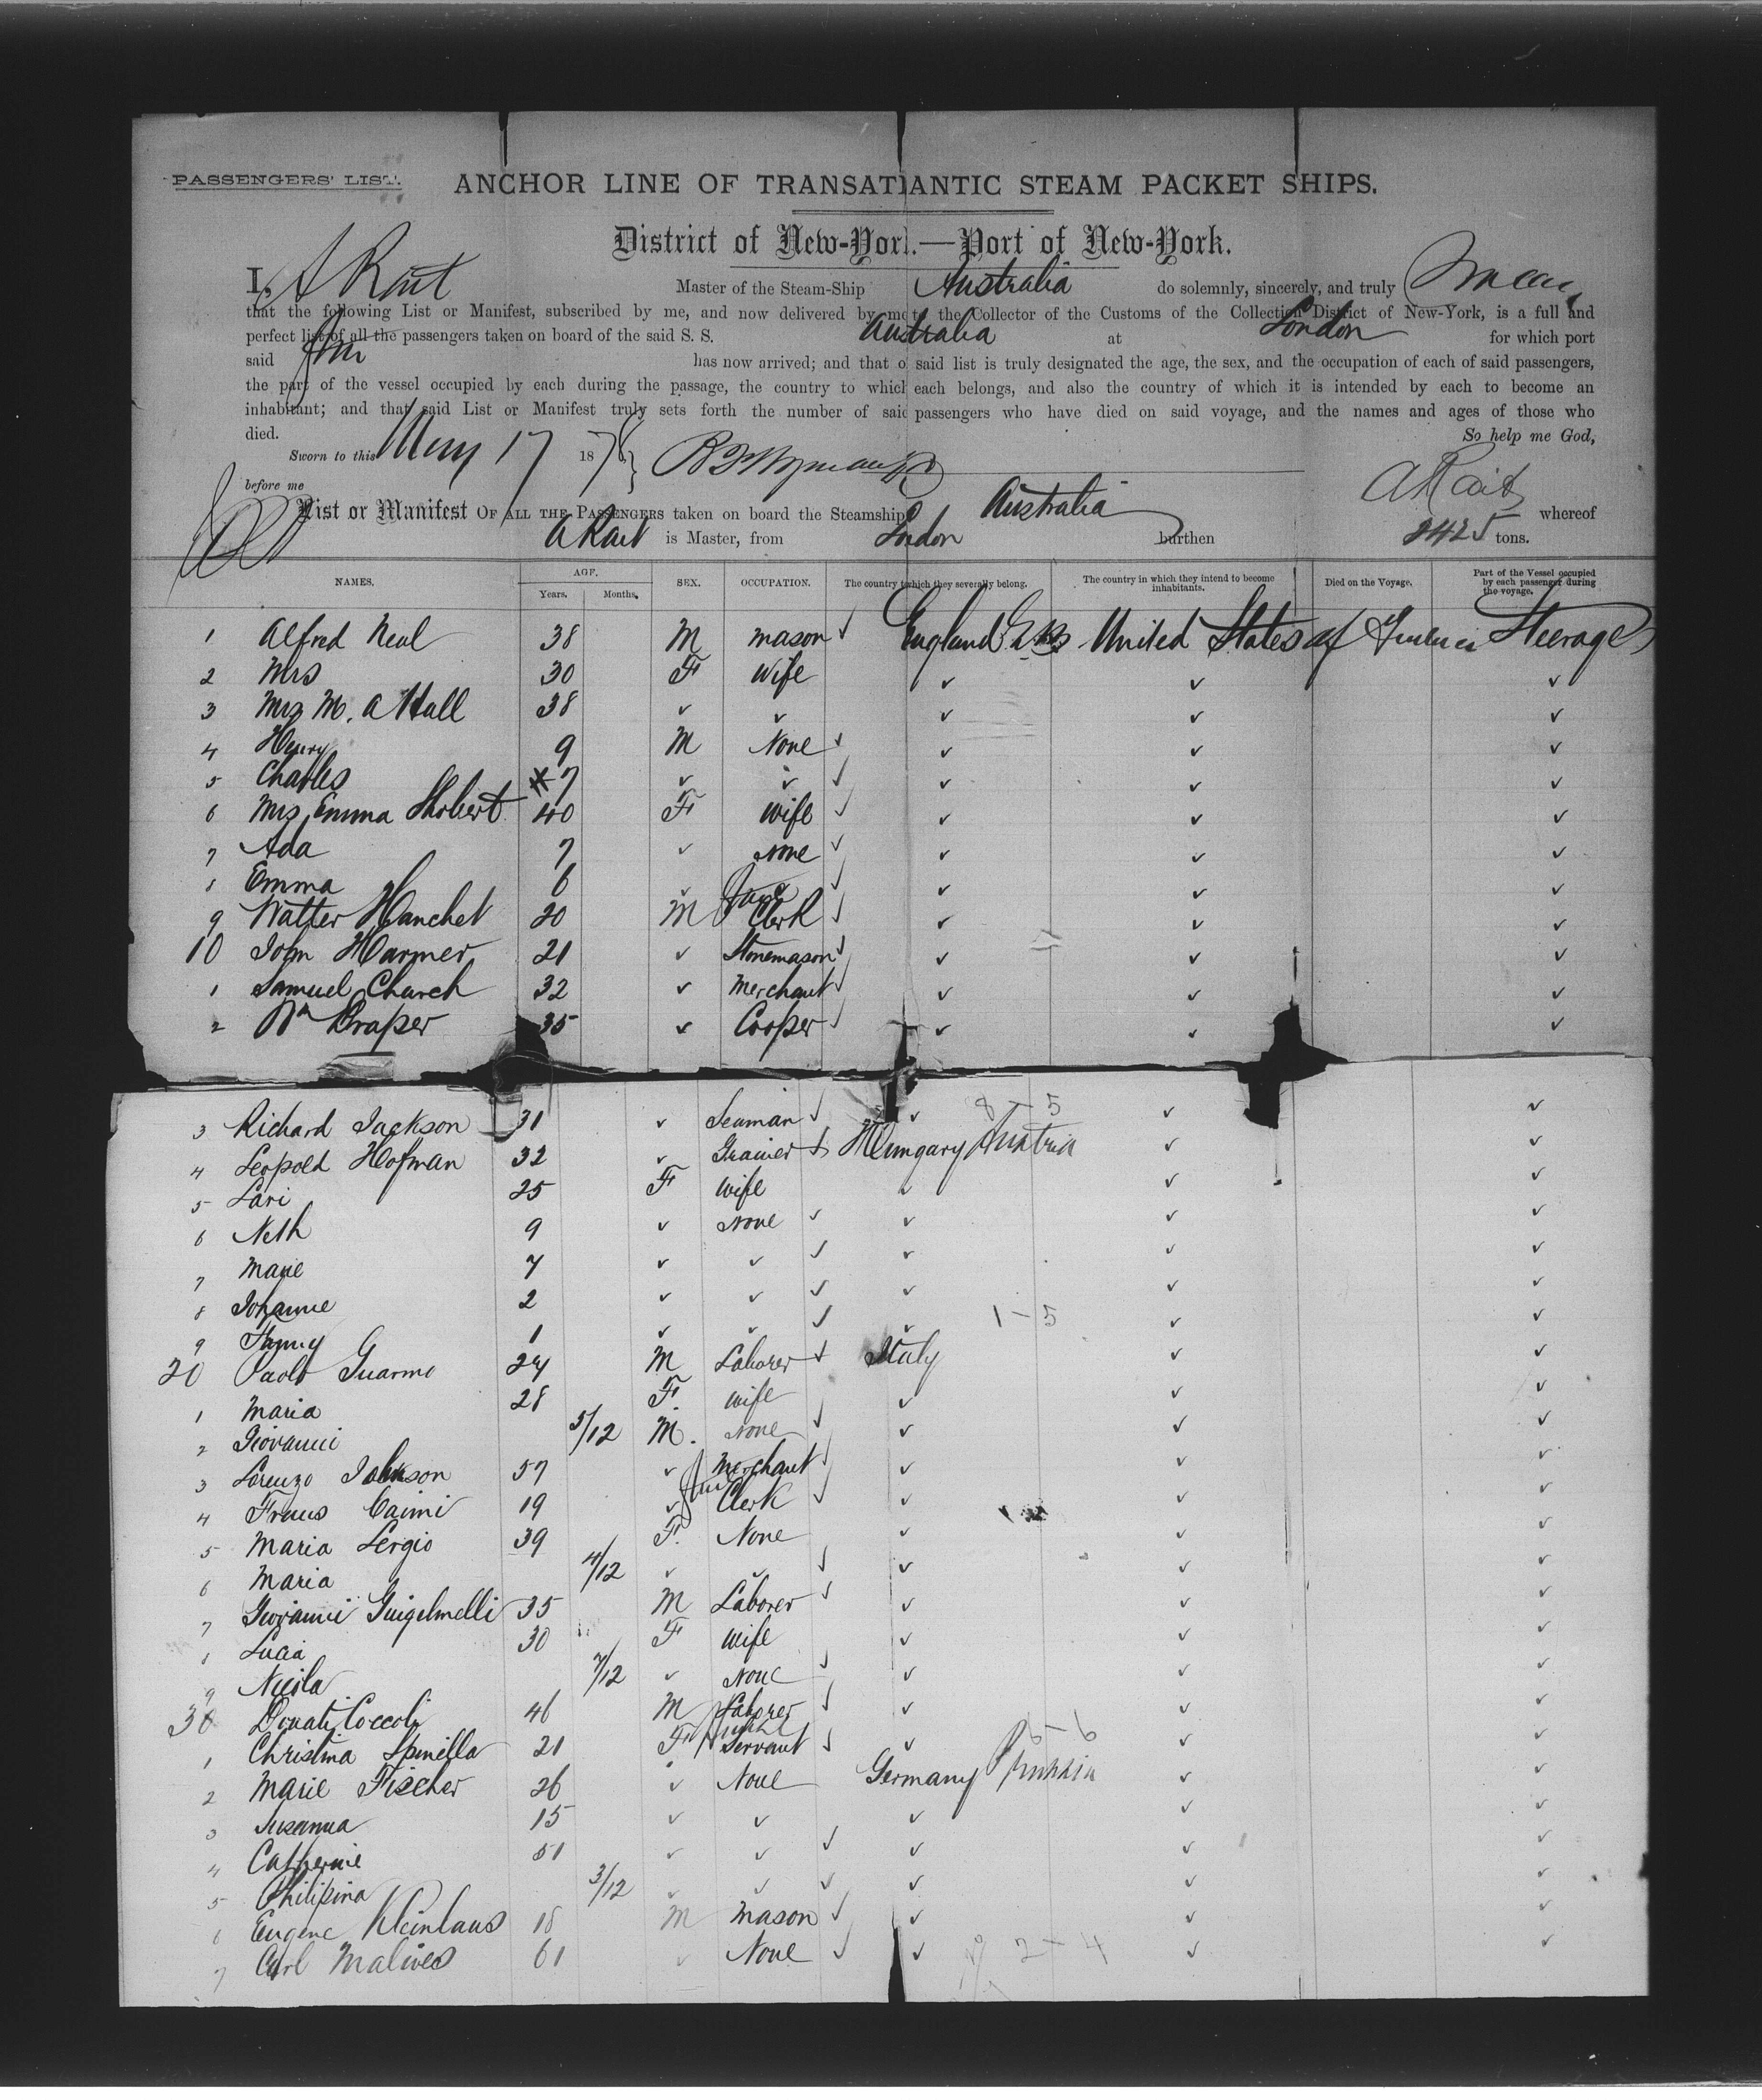 PASSENGERS' LIST.
ANCHOR LINE OF TRANSATLANTIC STEAM PACKET SHIPS.
District of New-York.—Port of New-York.
I, A Rait Master of the Steam-Ship Australia do solemnly, sincerely, and truly Swear,
that the following List or Manifest, subscribed by me, and now delivered by me to the Collector of the Customs of the Collection District of New-York, is a full and
perfect list of all the passengers taken on board of the said S. S. Australia at London for which port
said has now arrived; and that on said list is truly designated the age, the sex, and the occupation of each of said passengers,
the part of the vessel occupied by each during the passage, the country to which each belongs, and also the country of which it is intended by each to become an
inhabitant; and that said List or Manifest truly sets forth the number of said passengers who have died on said voyage, and the names and ages of those who
died. So help me God,
Sworn to this May 17 1878
before me A Rait
List or Manifest OF ALL THE PASSENGERS taken on board the Steamship Australia whereof
A Rait is Master, from London burthen 2425 tons.
NAMES. AGE. Years. Months. SEX. OCCUPATION. The country to which they severally belong. The country in which they intend to become inhabitants. Died on the Voyage. Part of the Vessel occupied by each passenger during the voyage.
1 Alfred Neal 38 M mason ✓ England United States of America Steerage
2 Mrs 30 F Wife ✓ ✓ ✓
3 Mrs M. A Hall 38 ✓ ✓ ✓ ✓ ✓
4 Henry 9 M None ✓ ✓ ✓ ✓
5 Charles 7 ✓ ✓ ✓ ✓ ✓ ✓
6 Mrs Emma 40 F Wife ✓ ✓ ✓ ✓
7 Ada 7 ✓ None ✓ ✓ ✓ ✓
8 Emma 6 ✓ ✓ ✓ ✓ ✓
9 Walter Hanchet 20 M Clerk ✓ ✓ ✓ ✓
10 John Harmer 21 ✓ Stonemason ✓ ✓ ✓ ✓
1 Samuel Church 32 ✓ Merchant ✓ ✓ ✓ ✓
2 Wm Draper 35 ✓ Cooper ✓ ✓ ✓ ✓
3 Richard Jackson 31 ✓ Seaman ✓ ✓ 8-5 ✓ ✓
4 Leopold Hofman 32 ✓ Hungary Austria ✓ ✓
5 Lari 25 F Wife ✓ ✓ ✓
6 Neth 9 ✓ None ✓ ✓ ✓ ✓
7 Marie 7 ✓ ✓ ✓ ✓ ✓ ✓
8 Johanne 2 ✓ ✓ ✓ ✓ ✓ ✓
9 Fanny 1 ✓ ✓ ✓ ✓ 1-5 ✓ ✓
20 Paolo Guarmo 24 M Laborer Italy ✓ ✓
1 Maria 28 F. Wife ✓ ✓ ✓
2 Giovanni 5/12 M. None ✓ ✓ ✓ ✓
3 Lorenzo 57 ✓ Merchant ✓ ✓ ✓ ✓
4 Caimi 19 ✓ Clerk ✓ ✓ ✓ ✓
5 Maria Sergio 39 F. None ✓ ✓ ✓
6 Maria 4/12 ✓ ✓ ✓ ✓ ✓ ✓
7 Giovanni Guigelmelli 35 M Laborer ✓ ✓ ✓ ✓
8 Lucia 30 F Wife ✓ ✓ ✓
9 Nicola 7/12 ✓ None ✓ ✓ ✓ ✓
30 Donati Coccoli 46 M Laborer ✓ ✓ ✓ ✓
1 Christina Spinella 21 F Servant ✓ ✓ 5-6 ✓ ✓
2 Marie Fischer 26 ✓ None Germany Prussia ✓ ✓
3 Susanna 15 ✓ ✓ ✓ ✓ ✓
4 Catherine 51 ✓ ✓ ✓ ✓ ✓ ✓
5 Philipina 3/12 ✓ ✓ ✓ ✓ ✓ ✓
6 Eugene Kleinlaus 18 M Mason ✓ ✓ ✓ ✓
7 Carl Malives 61 ✓ None ✓ ✓ 2-4 ✓ ✓